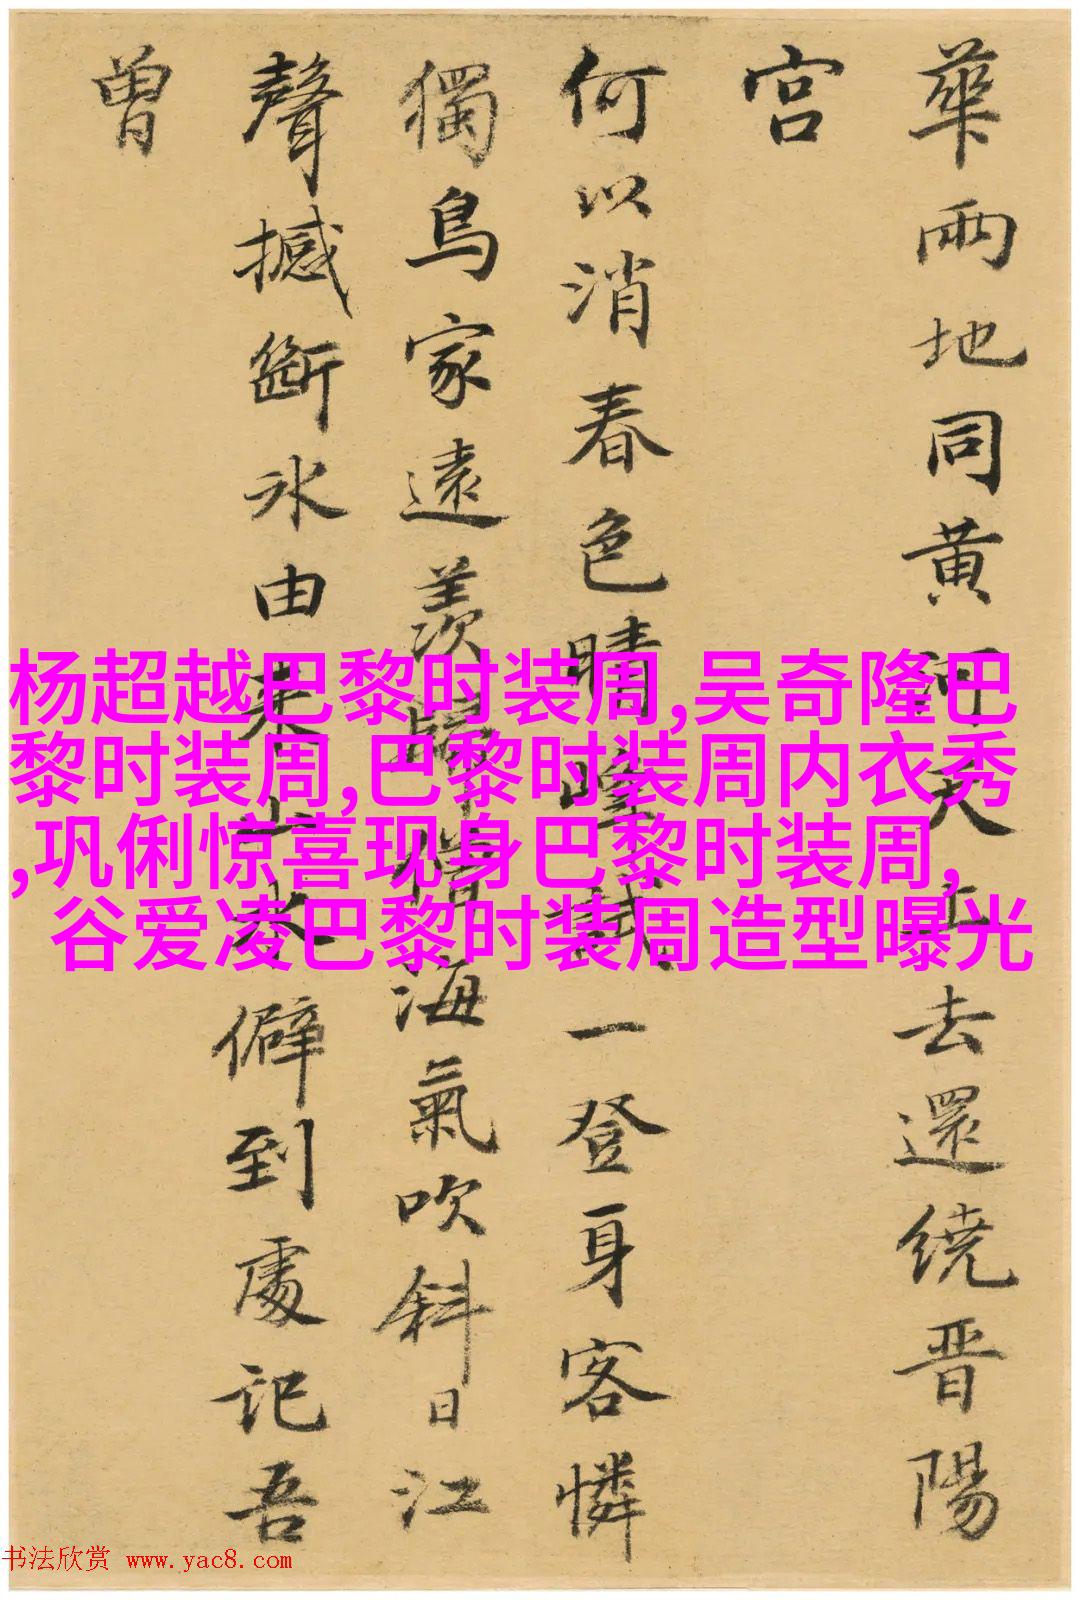 華兩地同黄河天上去還繞晋陽
宫
何以消春色晴曈試一登身客憐
獨鳥家遠羨歸僧海氣吹斜日江
聲撼斷冰由来山水僻到處记吾
曾
杨超越巴黎时装周,吴奇隆巴
黎时装周,巴黎时装周内衣秀
,巩俐惊喜现身巴黎时装周,
谷爱凌巴黎时装周造型曝光
书法欣赏 www.yac8.com